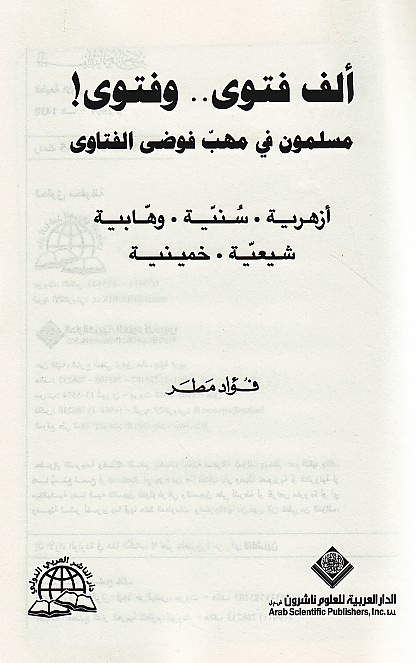 ألف فتوى.. وفتوى!
مسلمون في مهبّ فوضى الفتاوى
أزهرية • سُنيّة • وهّابية
شيعيّة • خمينية
فؤاد مَطَر
دار الناشر العربي الدولي
الدار العربية للعلوم ناشرون ش.م.ل
Arab Scientific Publishers, Inc. S.A.L